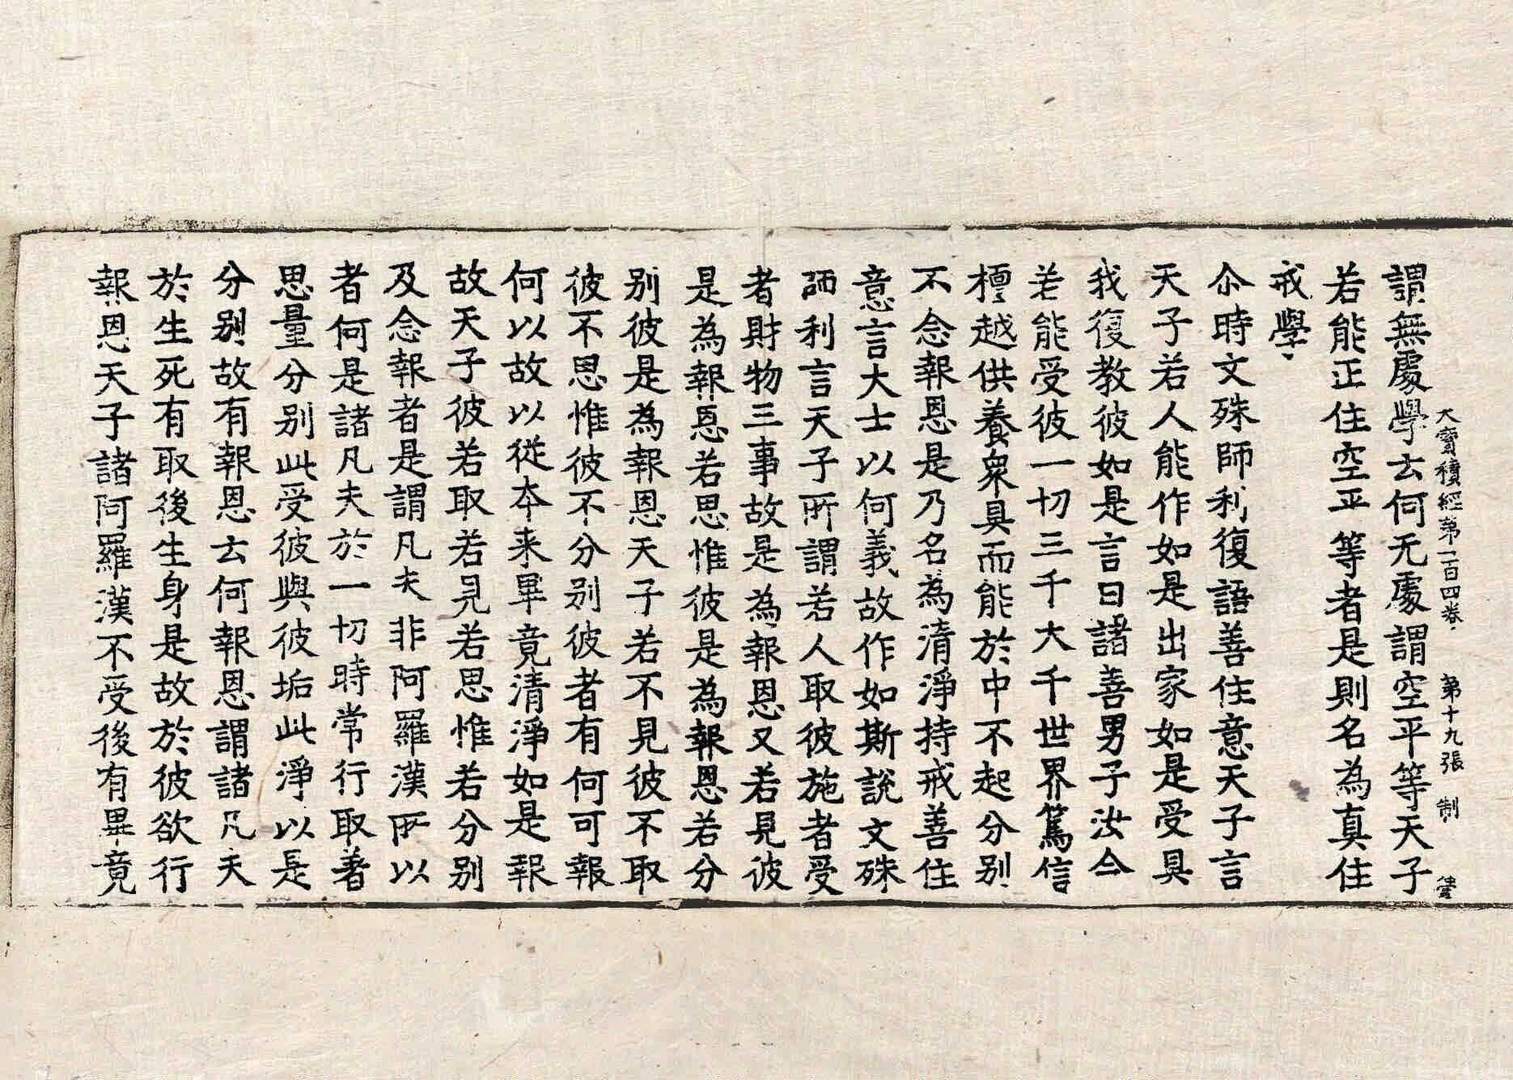 大寳積經第一百四卷 第十九張 制
謂無處學云何无處謂空平等天子
若能正住空平等者是則名為真住
戒學
尒時文殊師利復語善住意天子言
天子若人能作如是出家如是受具
我復教彼如是言曰諸善男子汝今
若能受彼一切三千大千世界篤信
檀越供養衆具而能於中不起分別
不念報恩是乃名為清淨持戒善住
意言大士以何義故作如斯說文殊
師利言天子所謂若人取彼施者受
者財物三事故是為報恩又若見彼
是為報恩若思惟彼是為報恩若分
別彼是為報恩天子若不見彼不取
彼不思惟彼不分別彼者有何可報
何以故以從夲来畢竟清淨如是報
故天子彼若取若見若思惟若分別
及念報者是謂凡夫非阿羅漢所以
者何是諸凡夫於一切時常行取著
思量分別此受彼與彼垢此淨以是
分別故有報恩云何報恩謂諸凡夫
於生死有取後生身是故於彼欲行
報恩天子諸阿羅漢不受後有畢竟